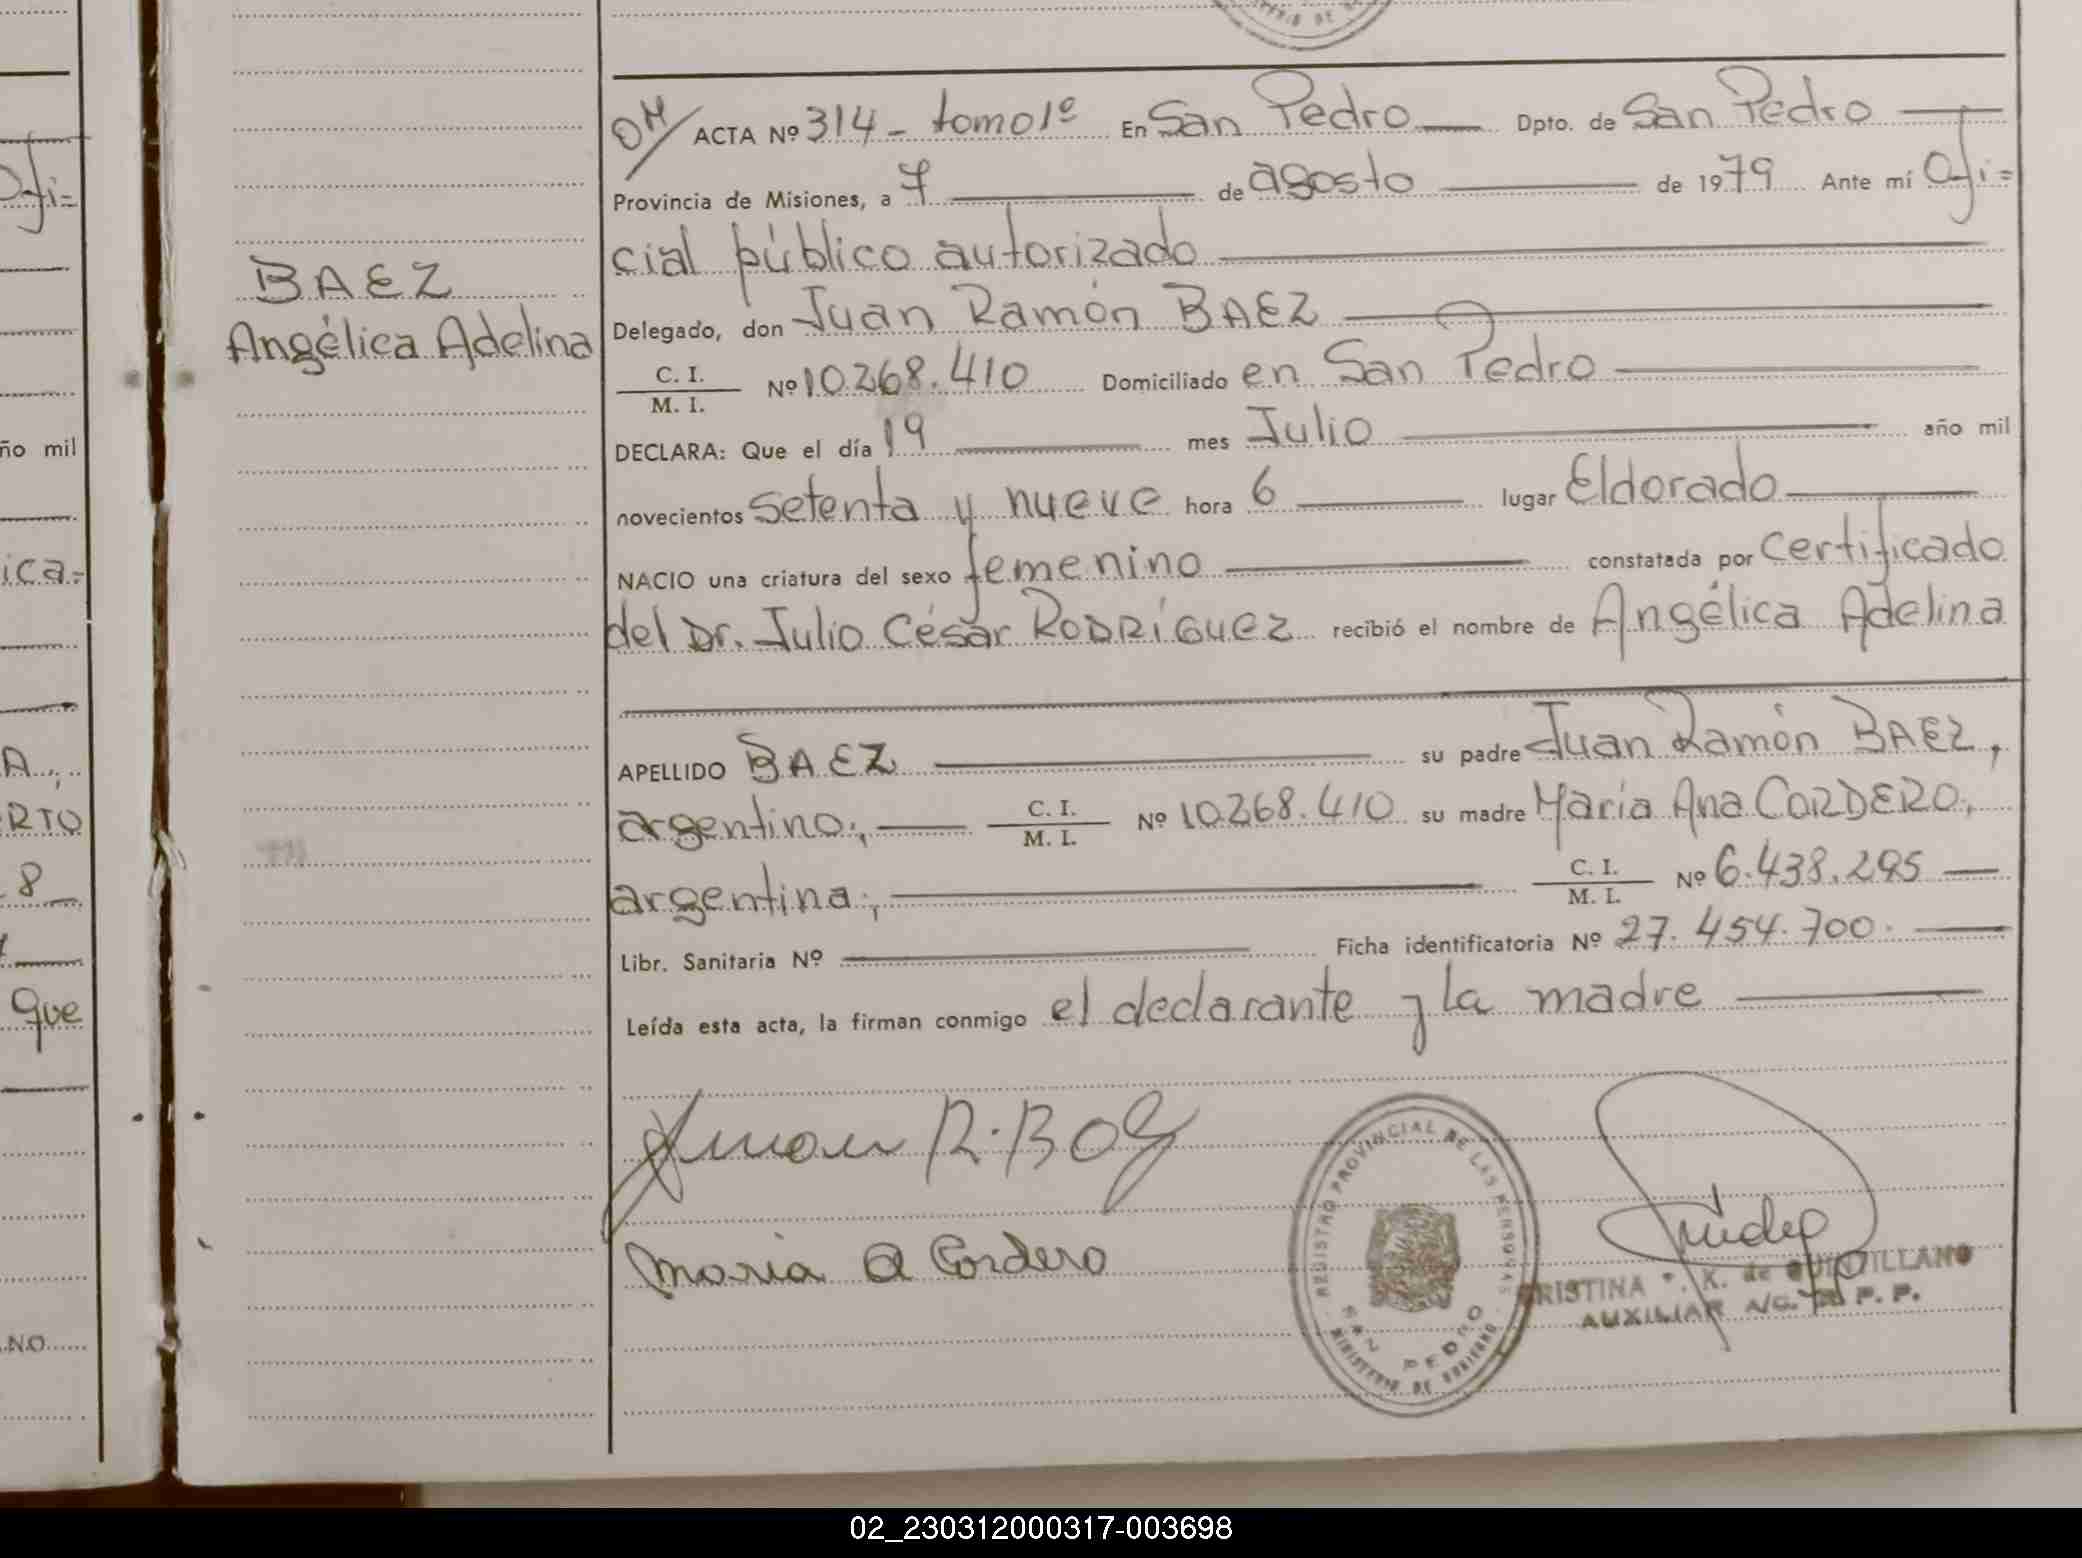 STERIO DE
OM/ ACTA Nº 314 - tomo 1º En San Pedro Dpto. de San Pedro
Provincia de Misiones, a 7 de agosto de 1979 Ante mí Ofi=
cial público autorizado
BAEZ
Angélica Adelina
Delegado, don Juan Ramón BAEZ
C. I.
M. I. Nº 10.268.410 Domiciliado en San Pedro
DECLARA: Que el día 19 mes Julio año mil
novecientos setenta y nueve hora 6 lugar Eldorado
NACIO una criatura del sexo femenino constatada por Certificado
del Dr. Julio César RODRÍGUEZ recibió el nombre de Angélica Adelina
APELLIDO BAEZ su padre Juan Ramón BAEZ,
argentino, C. I.
M. I. Nº 10.268.410 su madre María Ana CORDERO,
argentina, C. I.
M. I. Nº 6.438.295
Libr. Sanitaria Nº Ficha identificatoria Nº 27.454.700.
Leída esta acta, la firman conmigo el declarante y la madre
Juan R. Baez
Maria A Cordero
REGISTRO PROVINCIAL DE LAS PERSONAS
SAN PEDRO
MINISTERIO DE GOBIERNO
CRISTINA K. de QUINTILLANO
AUXILIAR A/C. R. P. P.
Ofi=
ño mil
ica=
A.,
RTO
8
que
NO
02_230312000317-003698